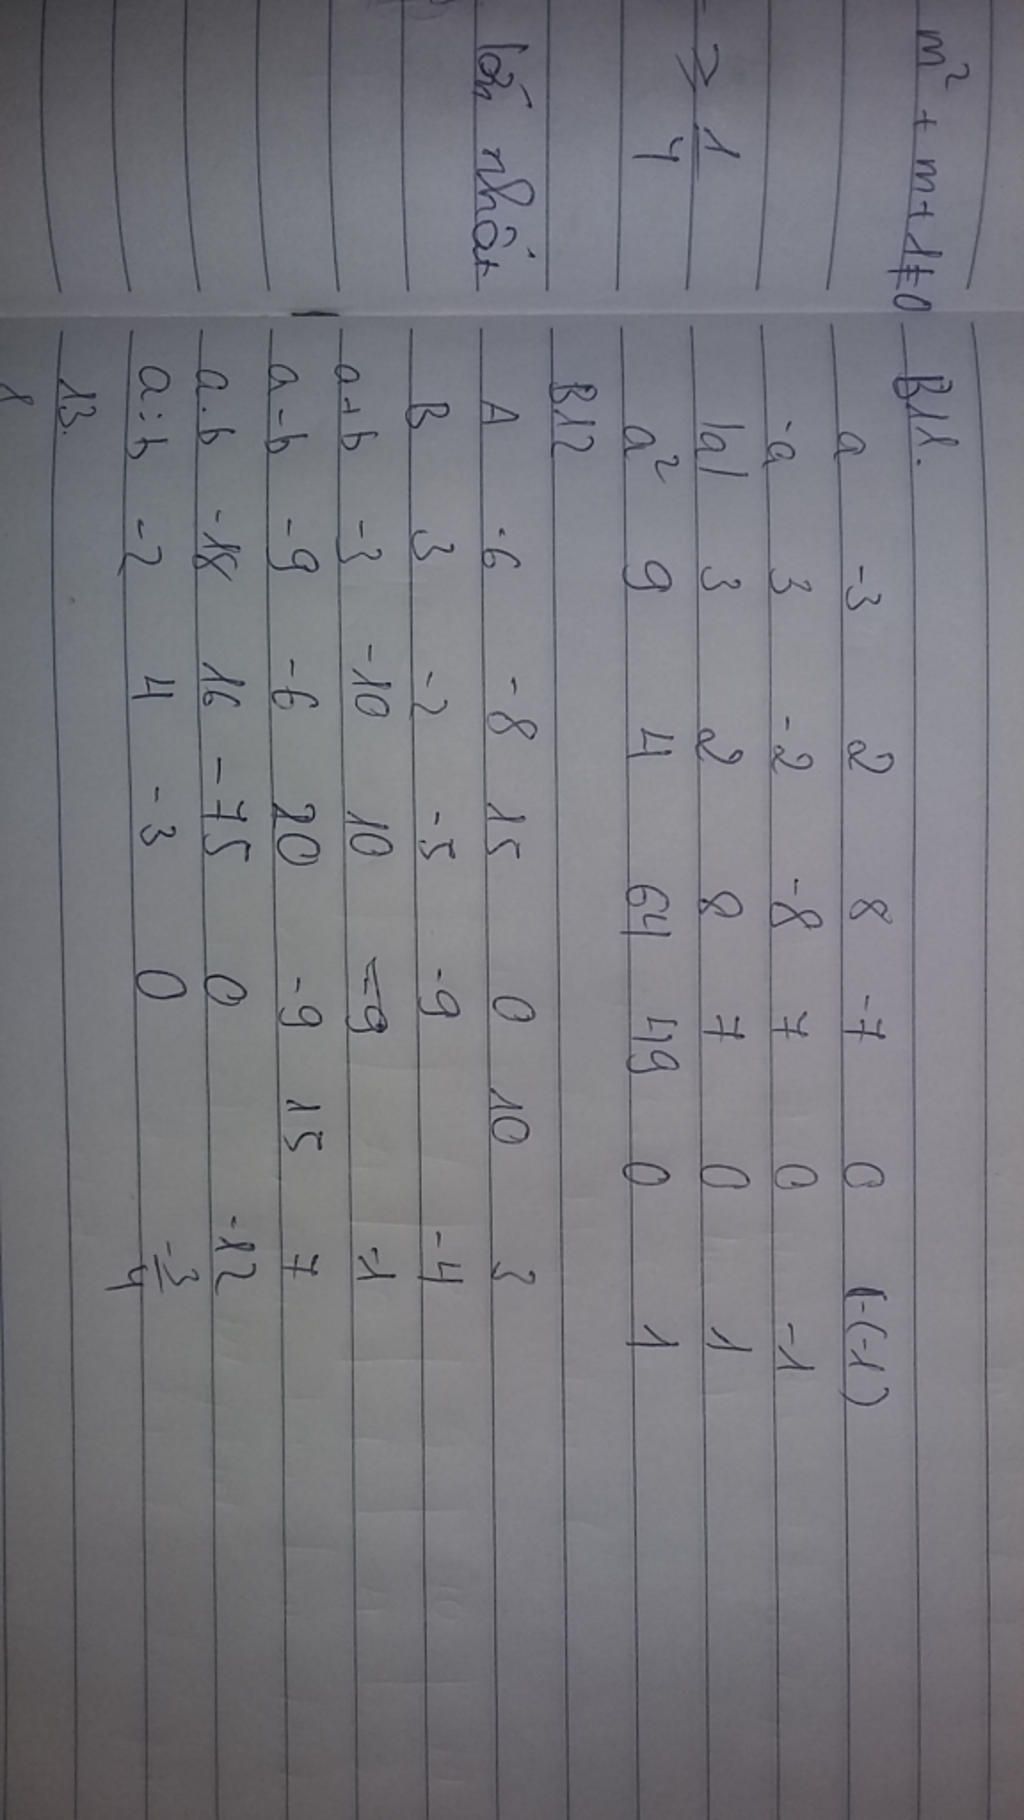 m² + m + 1 ≠ 0
≥ 1/4
lớn nhất
B11.
a -3 2 8 -7 0 (-(-1)
-a 3 -2 -8 7 0 -1
|a| 3 2 8 7 0 1
a² 9 4 64 49 0 1
B12
A -6 -8 15 0 10 3
B 3 -2 -5 -9 -4
a+b -3 -10 10 -9 -1
a-b -9 -6 20 -9 15 7
a.b -18 16 -75 0 -12
a:b -2 4 -3 0 -3/4
13.